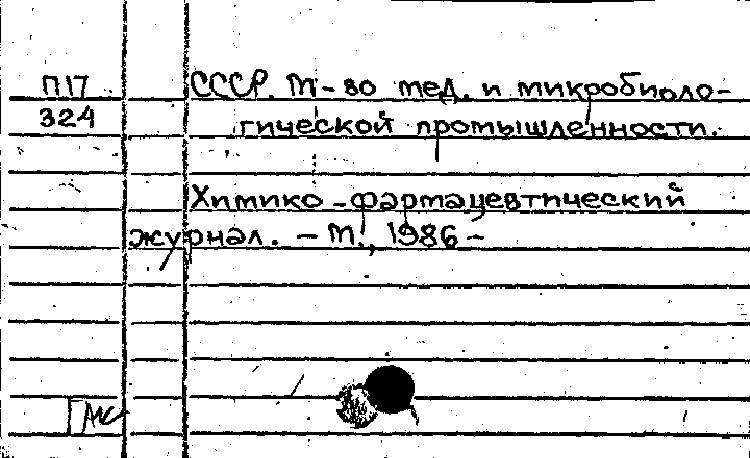 П17
324
СССР. М-во мед. и микробиоло-
гической промышленности.
Химико-фармацевтический
журнал. – М., 1986 –